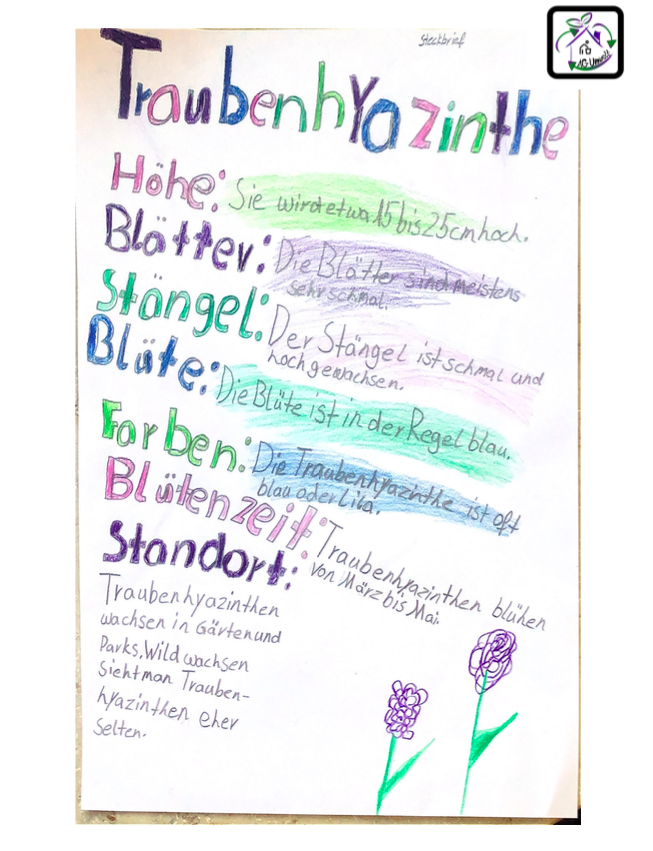 Steckbrief
AG-Umwelt
Traubenhyazinthe
Höhe: Sie wird etwa 15 bis 25cm hoch.
Blätter: Die Blätter sind meistens
sehr schmal.
Stängel: Der Stängel ist schmal und
hoch gewachsen.
Blüte: Die Blüte ist in der Regel blau.
Farben: Die Traubenhyazinthe ist oft
blau oder Lila.
Blütenzeit: Traubenhyazinthen blühen
von März bis Mai.
Standort:
Traubenhyazinthen
wachsen in Gärten und
Parks. Wild wachsen
sieht man Trauben-
hyazinthen eher
selten.